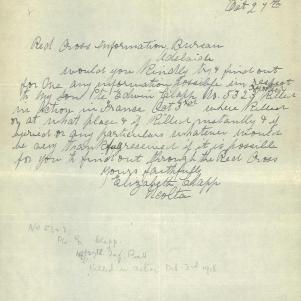 Oct 27th
Red Cross Information Bureau
Adelaide
would you Kindly try & find out
for me any information possible in respect
to my son Pte Edwin Clapp No. 5323 Killed
in Action in France Oct 3rd where Killed
or at what place & if Killed instantly & if
buried or any particulars whatever would
be very thankful received if it is possible
for you to find out through the Red Cross
Yours Faithfully
Elizabeth Clapp
No 5323
Pte E. Clapp.
Inf Batt
Killed in action Oct 3rd 1918